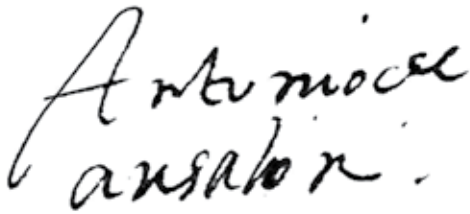 Antoniocce
ansaloni.